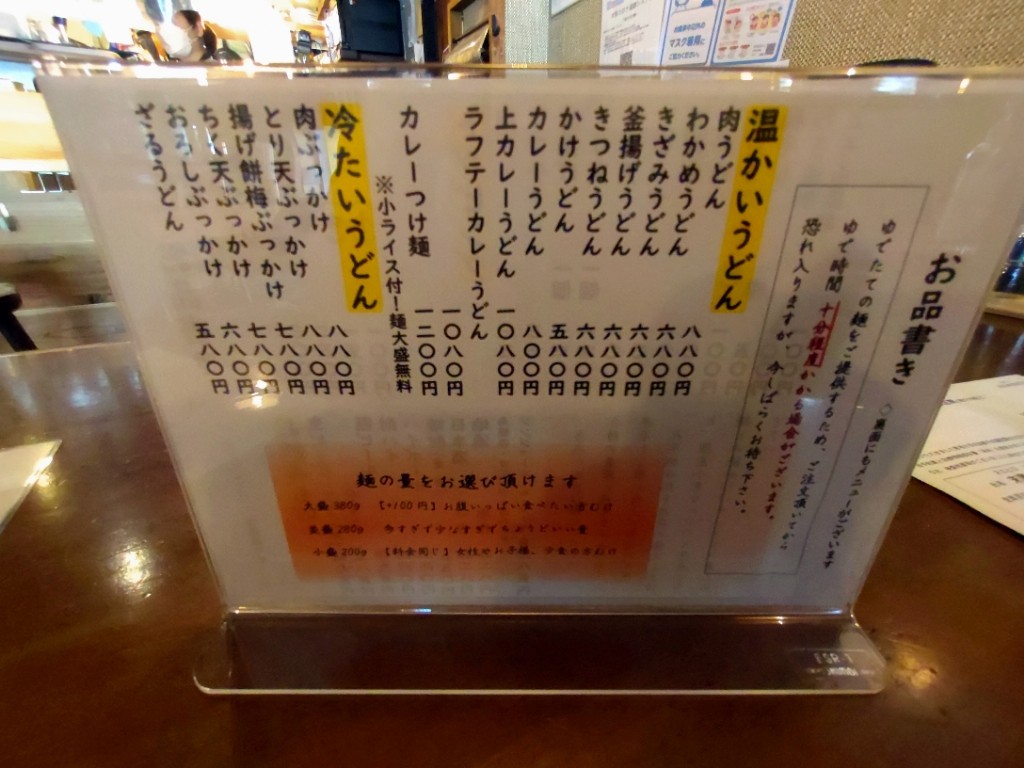 お品書き
○裏面にもメニューがございます
ゆでたての麺をご提供するため、ご注文頂いてから
ゆで時間 十分程度かかる場合がございます。
恐れ入りますが 今しばらくお待ち下さい。
温かいうどん
肉うどん 八八〇円
わかめうどん 六八〇円
きざみうどん 六八〇円
釜揚げうどん 六八〇円
きつねうどん 六八〇円
かけうどん 五八〇円
カレーうどん 八八〇円
上カレーうどん 一〇八〇円
ラフテーカレーうどん 一〇八〇円
カレーつけ麺 一二〇〇円
※小ライス付！麺大盛無料
冷たいうどん
肉ぶっかけ 八八〇円
とり天ぶっかけ 八八〇円
揚げ餅梅ぶっかけ 七八〇円
ちく天ぶっかけ 七八〇円
おろしぶっかけ 六八〇円
ざるうどん 五八〇円
麺の量をお選び頂けます
大盛 380g 【+100円】お腹いっぱい食べたい方むけ
並盛 280g 多すぎず少なすぎずちょうどいい量
小盛 200g 【料金同じ】女性やお子様、少食の方むけ
マスク着用に